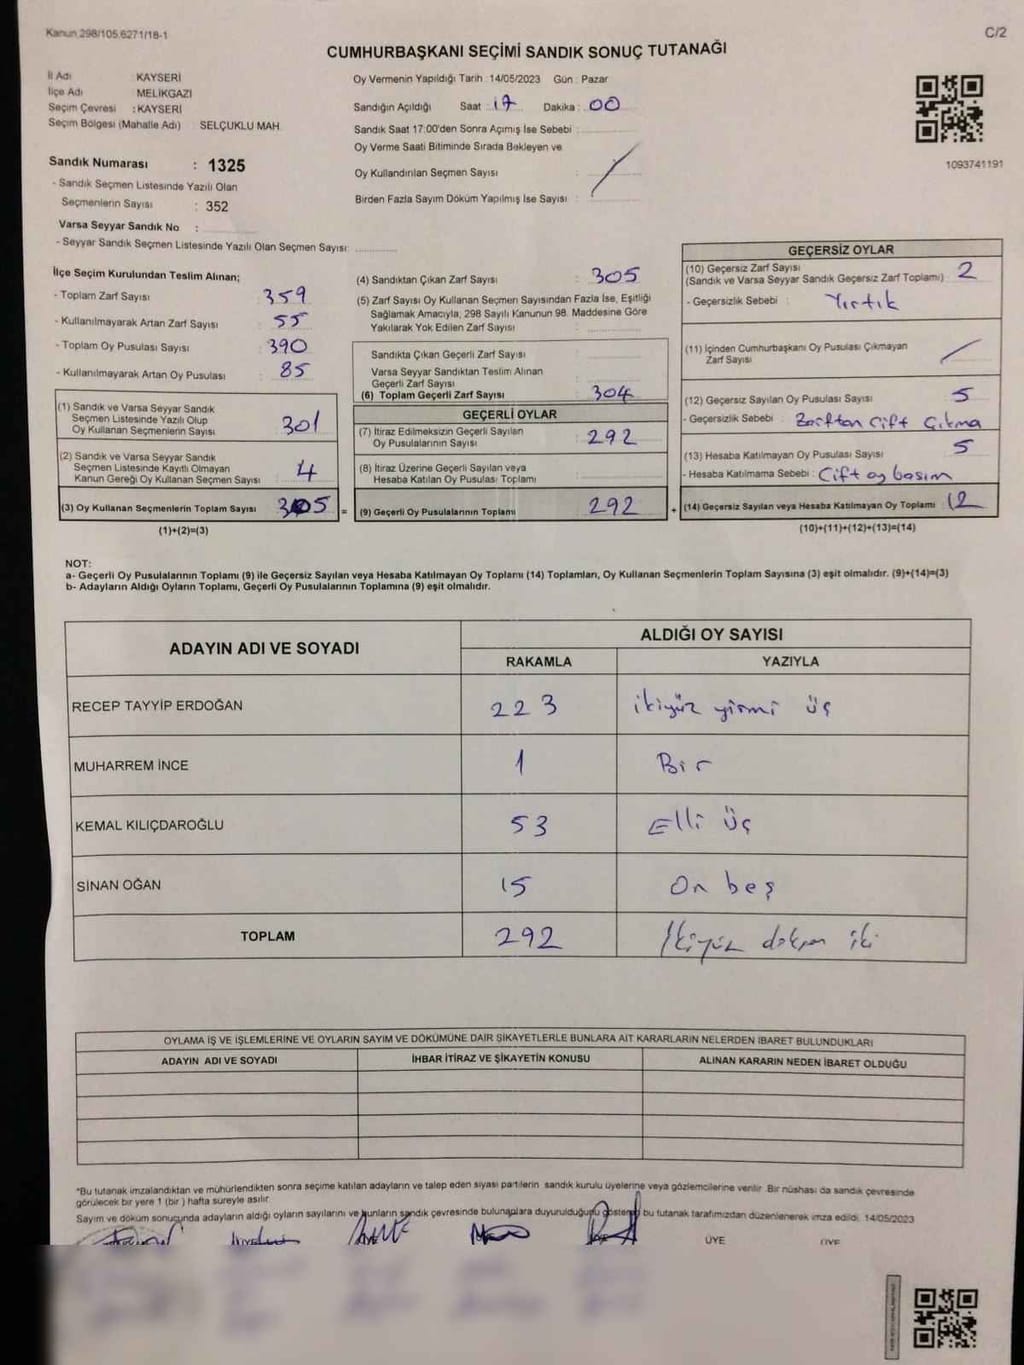 Kanun 298/105.6271/18-1
C/2
CUMHURBAŞKANI SEÇİMİ SANDIK SONUÇ TUTANAĞI
İl Adı KAYSERİ
İlçe Adı MELİKGAZİ
Seçim Çevresi : KAYSERİ
Seçim Bölgesi (Mahalle Adı) SELÇUKLU MAH.
Sandık Numarası : 1325
- Sandık Seçmen Listesinde Yazılı Olan
Seçmenlerin Sayısı : 352
Varsa Seyyar Sandık No :
- Seyyar Sandık Seçmen Listesinde Yazılı Olan Seçmen Sayısı:
Oy Vermenin Yapıldığı Tarih : 14/05/2023 Gün : Pazar
Sandığın Açıldığı Saat : 17 Dakika : 00
Sandık Saat 17:00'den Sonra Açımış İse Sebebi :
Oy Verme Saati Bitiminde Sırada Bekleyen ve
Oy Kullandırılan Seçmen Sayısı :
Birden Fazla Sayım Döküm Yapılmış İse Sayısı :
1093741191
İlçe Seçim Kurulundan Teslim Alınan;
- Toplam Zarf Sayısı : 359
- Kullanılmayarak Artan Zarf Sayısı : 55
- Toplam Oy Pusulası Sayısı : 390
- Kullanılmayarak Artan Oy Pusulası : 85
(1) Sandık ve Varsa Seyyar Sandık
Seçmen Listesinde Yazılı Olup
Oy Kullanan Seçmenlerin Sayısı 301
(2) Sandık ve Varsa Seyyar Sandık
Seçmen Listesinde Kayıtlı Olmayan
Kanun Gereği Oy Kullanan Seçmen Sayısı 4
(3) Oy Kullanan Seçmenlerin Toplam Sayısı 305 =
(1)+(2)=(3)
(4) Sandıktan Çıkan Zarf Sayısı : 305
(5) Zarf Sayısı Oy Kullanan Seçmen Sayısından Fazla İse, Eşitliği
Sağlamak Amacıyla, 298 Sayılı Kanunun 98. Maddesine Göre
Yakılarak Yok Edilen Zarf Sayısı :
Sandıkta Çıkan Geçerli Zarf Sayısı
Varsa Seyyar Sandıktan Teslim Alınan
Geçerli Zarf Sayısı
(6) Toplam Geçerli Zarf Sayısı 304
GEÇERLİ OYLAR
(7) İtiraz Edilmeksizin Geçerli Sayılan
Oy Pusulalarının Sayısı 292
(8) İtiraz Üzerine Geçerli Sayılan veya
Hesaba Katılan Oy Pusulası Toplamı
(9) Geçerli Oy Pusulalarının Toplamı 292 +
GEÇERSİZ OYLAR
(10) Geçersiz Zarf Sayısı
(Sandık ve Varsa Seyyar Sandık Geçersiz Zarf Toplamı) : 2
- Geçersizlik Sebebi : Yırtık
(11) İçinden Cumhurbaşkanı Oy Pusulası Çıkmayan
Zarf Sayısı
(12) Geçersiz Sayılan Oy Pusulası Sayısı 5
- Geçersizlik Sebebi : Zarftan Çift Çıkma
(13) Hesaba Katılmayan Oy Pusulası Sayısı 5
- Hesaba Katılmama Sebebi : Çift oy basım
(14) Geçersiz Sayılan veya Hesaba Katılmayan Oy Toplamı 12
(10)+(11)+(12)+(13)=(14)
NOT:
a- Geçerli Oy Pusulalarının Toplamı (9) ile Geçersiz Sayılan veya Hesaba Katılmayan Oy Toplamı (14) Toplamları, Oy Kullanan Seçmenlerin Toplam Sayısına (3) eşit olmalıdır. (9)+(14)=(3)
b- Adayların Aldığı Oyların Toplamı, Geçerli Oy Pusulalarının Toplamına (9) eşit olmalıdır.
ADAYIN ADI VE SOYADI ALDIĞI OY SAYISI
RAKAMLA YAZIYLA
RECEP TAYYİP ERDOĞAN 223 ikiyüz yirmi üç
MUHARREM İNCE 1 Bir
KEMAL KILIÇDAROĞLU 53 Elli Üç
SİNAN OĞAN 15 On beş
TOPLAM 292 İkiyüz doksan iki
OYLAMA İŞ VE İŞLEMLERİNE VE OYLARIN SAYIM VE DÖKÜMÜNE DAİR ŞİKAYETLERLE BUNLARA AİT KARARLARIN NELERDEN İBARET BULUNDUKLARI
ADAYIN ADI VE SOYADI İHBAR İTİRAZ VE ŞİKAYETİN KONUSU ALINAN KARARIN NEDEN İBARET OLDUĞU
*Bu tutanak imzalandıktan ve mühürlendikten sonra seçime katılan adayların ve talep eden siyasi partilerin sandık kurulu üyelerine veya gözlemcilerine verilir. Bir nüshası da sandık çevresinde
görülecek bir yere 1 (bir ) hafta süreyle asılır.
Sayım ve döküm sonucunda adayların aldığı oyların sayılarını ve bunların sandık çevresinde bulunanlara duyurulduğunu gösteren bu tutanak tarafımızdan düzenlenerek imza edildi. 14/05/2023
ÜYE ÜYE